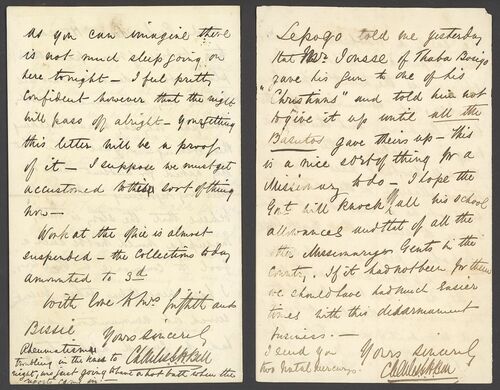 as you can imagine there
is not much sleep going on
here tonight — I feel pretty
confident however that the night
will pass off alright — You getting
this letter will be a proof
of it — I suppose we must get
accustomed to this sort of thing
now —
Work at the Office is almost
suspended — the Collections today
amounted to 3d
With love to Mrs Griffith and
Bessie
Yours sincerely
Rheumatism
troubling in the knee to
night, was just going to have a hot bath when the
Lepogo told me yesterday
that Mr. Jousse of Thaba Bosigo
gave his gun to one of his
"Christians" and told him not
to give it up until all the
Basutos gave theirs up — this
is a nice sort of thing for a
Missionary to do — I hope the
Govt will knock off all his school
allowances and that of all the
other Missionary Gents in the
country. If it had not been for them
we should have had much easier
times with this disarmament
business —
I send you
two Natal Mercurys.
Yours Sincerely